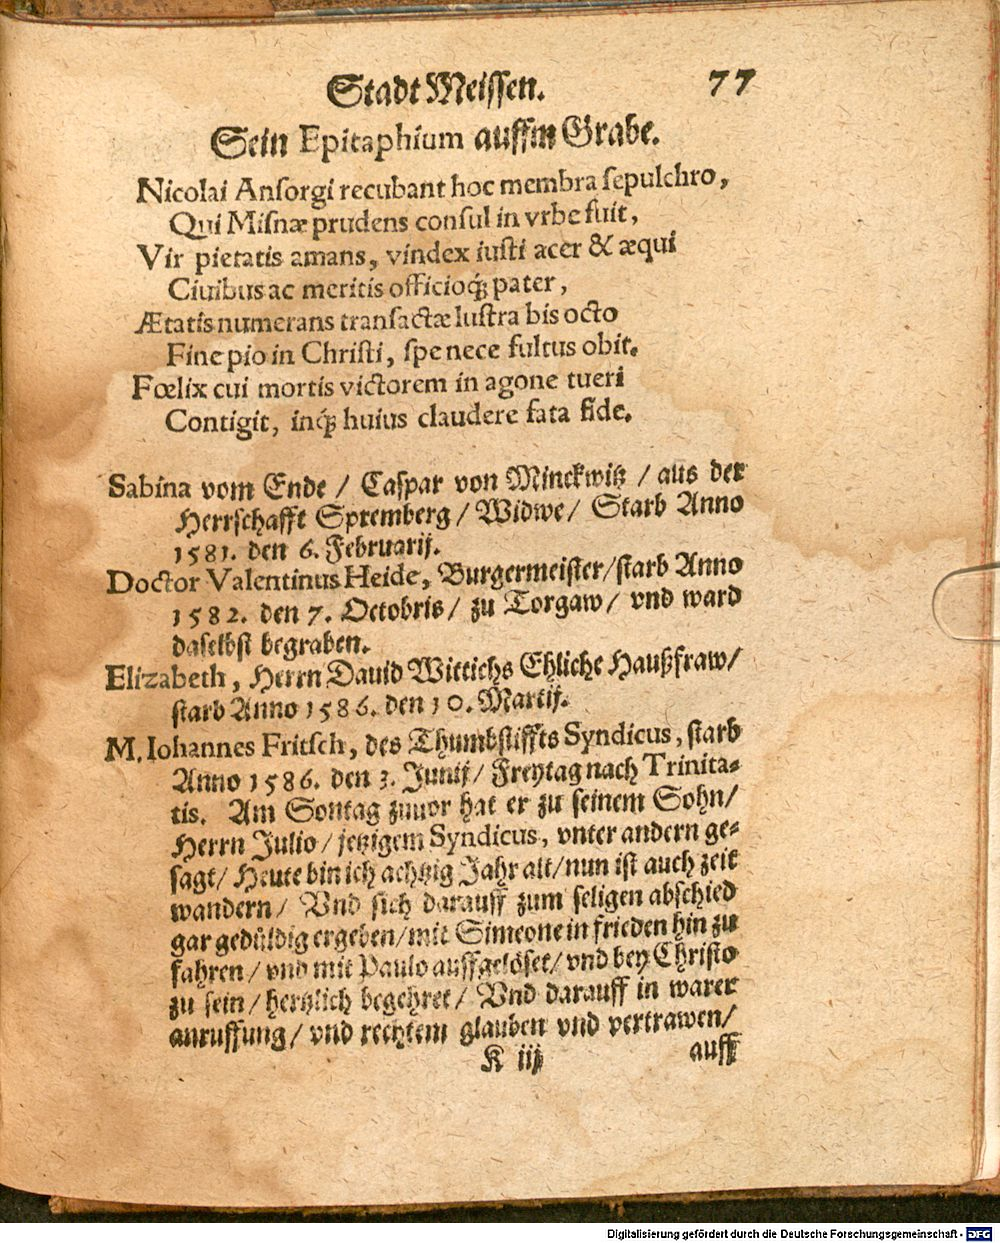 Stadt Meissen. 77
Sein Epitaphium auffm Grabe.
Nicolai Ansorgi recubant hoc membra sepulchro,
Qui Misnæ prudens consul in vrbe fuit,
Vir pietatis amans, vindex iusti acer & æqui
Ciuibus ac meritis officioq́; pater,
Ætatis numerans transactæ lustra bis octo
Fine pio in Christi, spe nece fultus obit.
Fœlix cui mortis victorem in agone tueri
Contigit, inq́; huius claudere fata fide.
Sabina vom Ende / Caspar von Minckwitz / aus der
Herrschafft Spremberg / Widwe / Starb Anno
1581. den 6. Februarij.
Doctor Valentinus Heide, Burgermeister/starb Anno
1582. den 7. Octobris / zu Torgaw / vnd ward
daselbst begraben.
Elizabeth, Herrn Dauid Wittichs Ehliche Haußfraw/
starb Anno 1586. den 10. Martij.
M. Iohannes Fritsch, des Thumbstiffts Syndicus, starb
Anno 1586. den 3. Junij / Freytag nach Trinita-
tis. Am Sontag zuuor hat er zu seinem Sohn/
Herrn Julio / jetzigem Syndicus, vnter andern ge-
sagt / Heute bin ich achtzig Jahr alt/nun ist auch zeit
wandern / Vnd sich darauff zum seligen abschied
gar gedüldig ergeben/mit Simeone in frieden hin zu
fahren / vnd mit Paulo auffgelöset/ vnd bey Christo
zu sein / hertzlich begehret / Vnd darauff in warer
anruffung / vnd rechtem glauben vnd vertrawen/
K iij auff
Digitalisierung gefördert durch die Deutsche Forschungsgemeinschaft - DFG